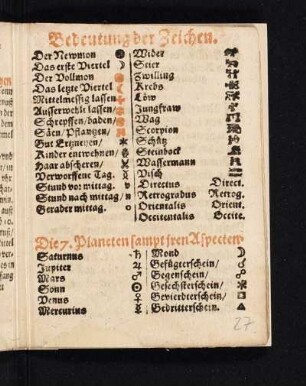 Bedeutung der Zeichen.
Der Newmon ● Wider ♈
Das erste Viertel ☽ Stier ♉
Der Vollmon Zwilling ♊
Das letzte Viertel ☾ Krebs ♋
Mittelmessig lassen Löw ♌
Ausserwöhlt lassen/ Jungfraw ♍
Schrepffen/baden/ Wag ♎
Säen/Pflantzen/ Scorpion ♏
Gut Ertzneyen/ Schütz ♐
Kinder entwehnen/ Steinbock ♑
Haar abscheren/ Wasserman ♒
Verworffene Tag. Visch ♓
Stund vor mittag. v Directus Direct.
Stund nach mittag/ n Retrogradus Retrog.
Gerader mittag. o Orientalis Orient.
Occitentalis Occite.
Die 7. Planeten sampt jren Aspecten
Saturnus ♄ Mond ☽
Jupiter ♃ Gefügterschein/ ☌
Mars ♂ Gegenschein/ ☍
Sonn ☉ Gesechsterschein/ ⚹
Venus ♀ Gevierdterschein/ □
Mercurius ☿ Gedritterschein. △
27